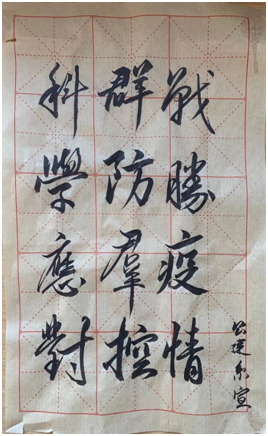 科學應對
群防羣控
戰勝疫情